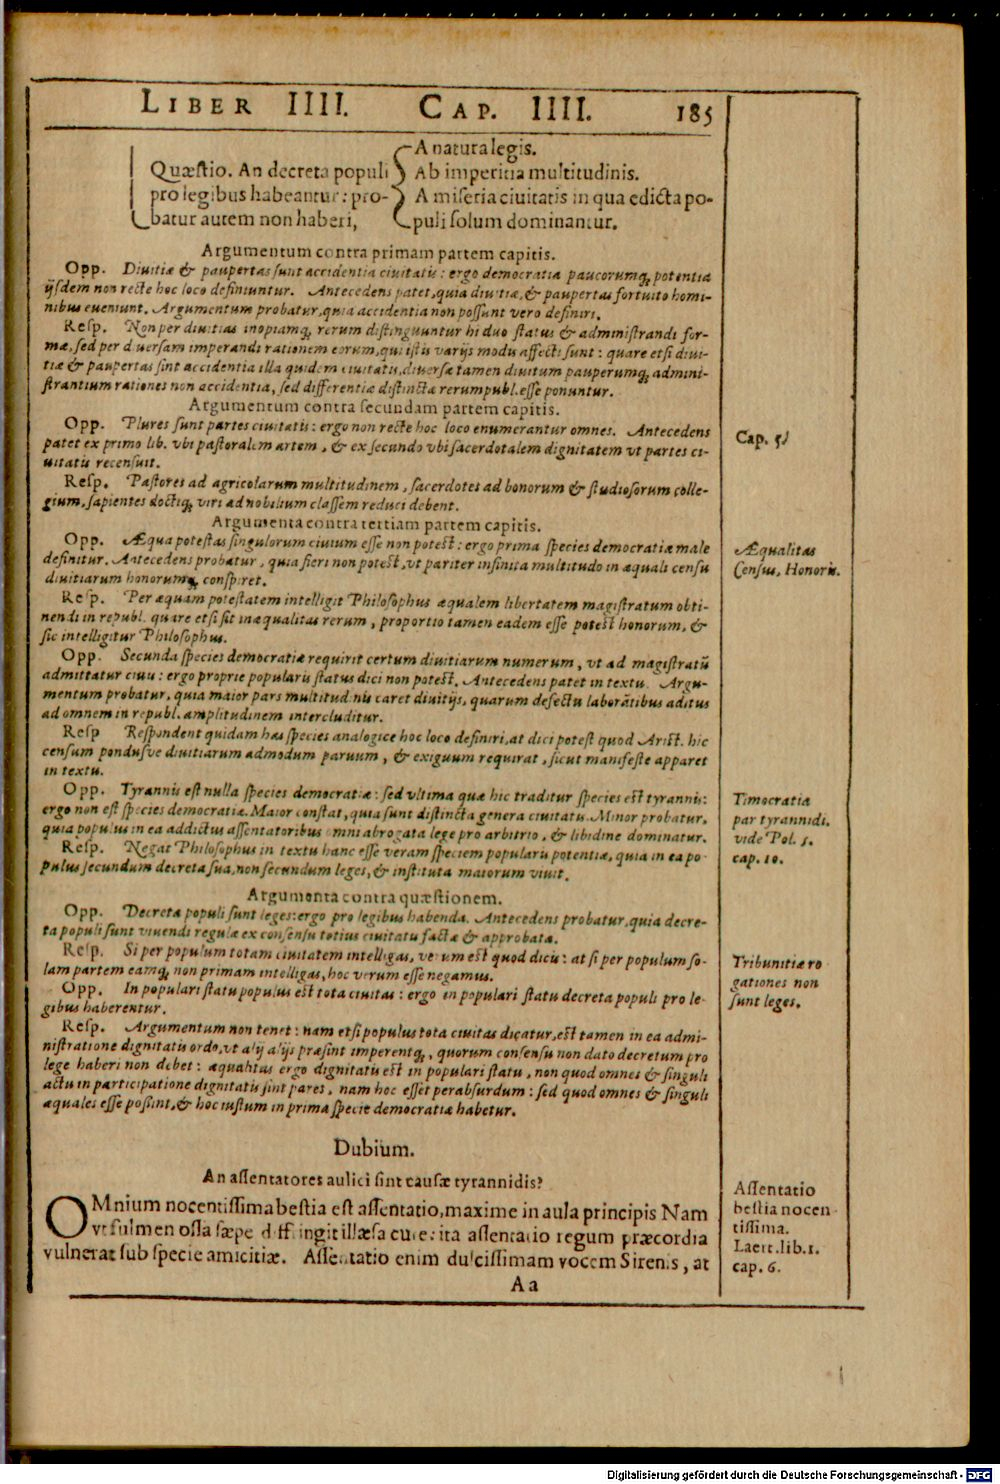 LIBER IIII. CAP. IIII. 185
Quæstio. An decreta populi
pro legibus habeantur: pro-
batur autem non haberi,
A natura legis.
Ab imperitia multitudinis.
A miseria ciuitatis in qua edicta po-
puli solum dominantur.
Argumentum contra primam partem capitis.
Opp. Diuitiæ & paupertas sunt accidentia ciuitatis: ergo democratia paucorumq; potentia
ijsdem non recte hoc loco definiuntur. Antecedens patet, quia diuitiæ, & paupertas fortuito homi-
nibus eueniunt. Argumentum probatur, quia accidentia non possunt vero definiri.
Resp. Non per diuitias inopiamq; rerum distinguuntur hi duo status & administrandi for-
mæ, sed per diuersam imperandi rationem eorum, qui istis varijs modis affecti sunt: quare etsi diui-
tiæ & paupertas sint accidentia illa quidem ciuitatis, diuersæ tamen diuitum pauperumq; admini-
strantium rationes non accidentia, sed differentiæ distinctæ rerumpubl. esse ponuntur.
Argumentum contra secundam partem capitis.
Opp. Plures sunt partes ciuitatis: ergo non recte hoc loco enumerantur omnes. Antecedens
patet ex primo lib. vbi pastoralem artem, & ex secundo vbi sacerdotalem dignitatem vt partes ci-
uitatis recensuit.
Cap. 5.
Resp. Pastores ad agricolarum multitudinem, sacerdotes ad bonorum & studiosorum colle-
gium, sapientes doctiq; viri ad nobilium classem reduci debent.
Argumenta contra tertiam partem capitis.
Opp. Æqua potestas singulorum ciuium esse non potest: ergo prima species democratiæ male
definitur. Antecedens probatur, quia fieri non potest, vt pariter infinita multitudo in æquali censu
diuitiarum honorumq; conspiret.
Æqualitas
Census, Honoris.
Resp. Per æquam potestatem intelligit Philosophus æqualem libertatem magistratum obti-
nendi in republ. quare etsi sit inæqualitas rerum, proportio tamen eadem esse potest honorum, &
sic intelligitur Philosophus.
Opp. Secunda species democratiæ requirit certum diuitiarum numerum, vt ad magistratū
admittatur ciuis: ergo proprie popularis status dici non potest. Antecedens patet in textu. Argu-
mentum probatur, quia maior pars multitudinis caret diuitijs, quarum defectu laborātibus aditus
ad omnem in republ. amplitudinem intercluditur.
Resp Respondent quidam has species analogice hoc loco definiri, at dici potest quod Arist. hic
censum pondusve diuitiarum admodum paruum, & exiguum requirat, sicut manifeste apparet
in textu.
Opp. Tyrannis est nulla species democratiæ: sed vltima quæ hic traditur species est tyrannis:
ergo non est species democratiæ. Maior constat, quia sunt distincta genera ciuitatis. Minor probatur,
quia populus in ea addictus assentatoribus omni abrogata lege pro arbitrio, & libidine dominatur.
Timocratia
par tyrannidi.
vide Pol. 5.
cap. 10.
Resp. Negat Philosophus in textu hanc esse veram speciem popularis potentiæ, quia in ea po-
pulus secundum decreta sua, non secundum leges, & instituta maiorum viuit.
Argumenta contra quæstionem.
Opp. Decreta populi sunt leges: ergo pro legibus habenda. Antecedens probatur, quia decre-
ta populi sunt viuendi regulæ ex consensu totius ciuitatis factæ & approbatæ.
Resp. Si per populum totam ciuitatem intelligas, verum est quod dicis: at si per populum so-
lam partem eamq; non primam intelligas, hoc verum esse negamus.
Tribunitiæ ro
gationes non
sunt leges.
Opp. In populari statu populus est tota ciuitas: ergo in populari statu decreta populi pro le-
gibus haberentur.
Resp. Argumentum non tenet: nam etsi populus tota ciuitas dicatur, est tamen in ea admi-
nistratione dignitatis ordo, vt alij alijs præsint imperentq;, quorum consensu non dato decretum pro
lege haberi non debet: æqualitas ergo dignitatis est in populari statu, non quod omnes & singuli
actu in participatione dignitatis sint pares, nam hoc esset perabsurdum: sed quod omnes & singuli
æquales esse possint, & hoc iustum in prima specie democratiæ habetur.
Dubium.
An assentatores aulici sint causæ tyrannidis?
OMnium nocentissima bestia est assentatio, maxime in aula principis Nam
vt fulmen ossa sæpe diffringit illæsa cute: ita assentatio regum præcordia
vulnerat sub specie amicitiæ. Assentatio enim dulcissimam vocem Sirenis, at
Assentatio
bestia nocen-
tissima.
Laert. lib. 1.
cap. 6.
Aa
Digitalisierung gefördert durch die Deutsche Forschungsgemeinschaft - DFG